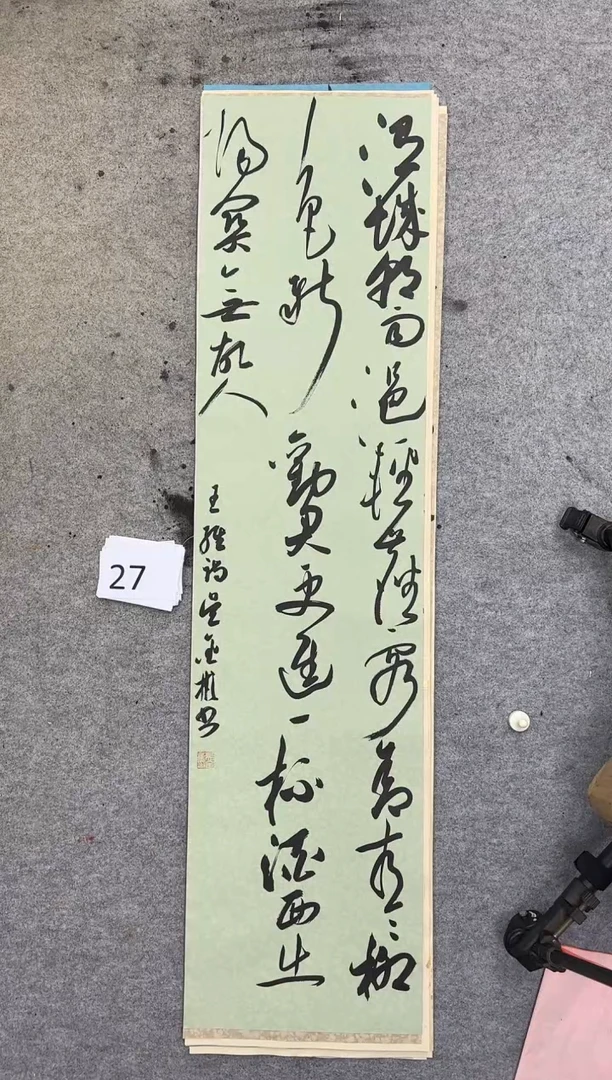 渭城朝雨浥輕塵客舍青青柳
色新勸君更進一杯酒西出
陽關無故人
王維詩吳金書
27